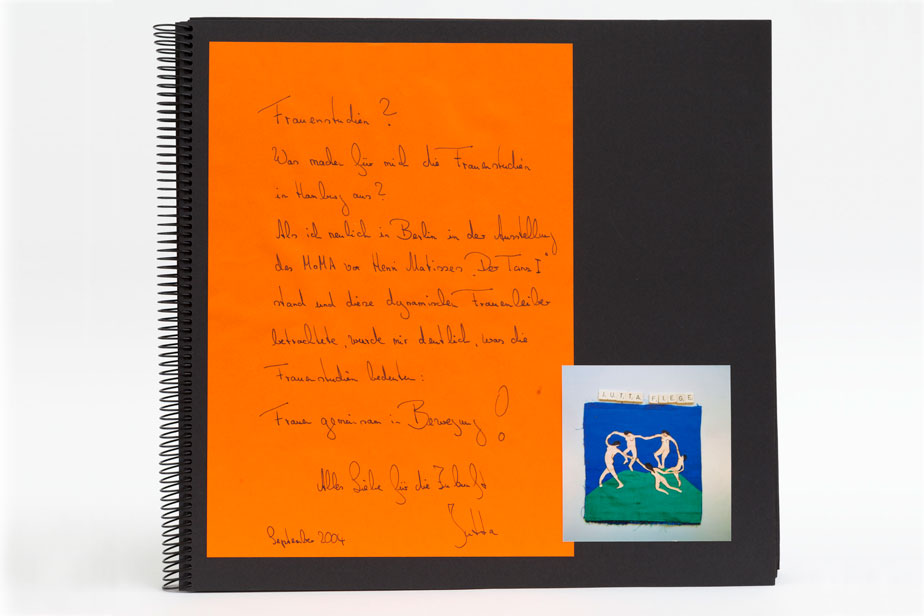 Frauenstudien?
Was machen für mich die Frauenstudien
in Hamburg aus?
Als ich neulich in Berlin in der Ausstellung
des MoMA vor Henri Matisses „Der Tanz I"
stand und diese dynamischen Frauenleiber
betrachtete, wurde mir deutlich, was die
Frauenstudien bedeuten:
Frauen gemeinsam in Bewegung!
Alles Liebe für die Zukunft
Jutta
September 2004
JUTTA FIEGE